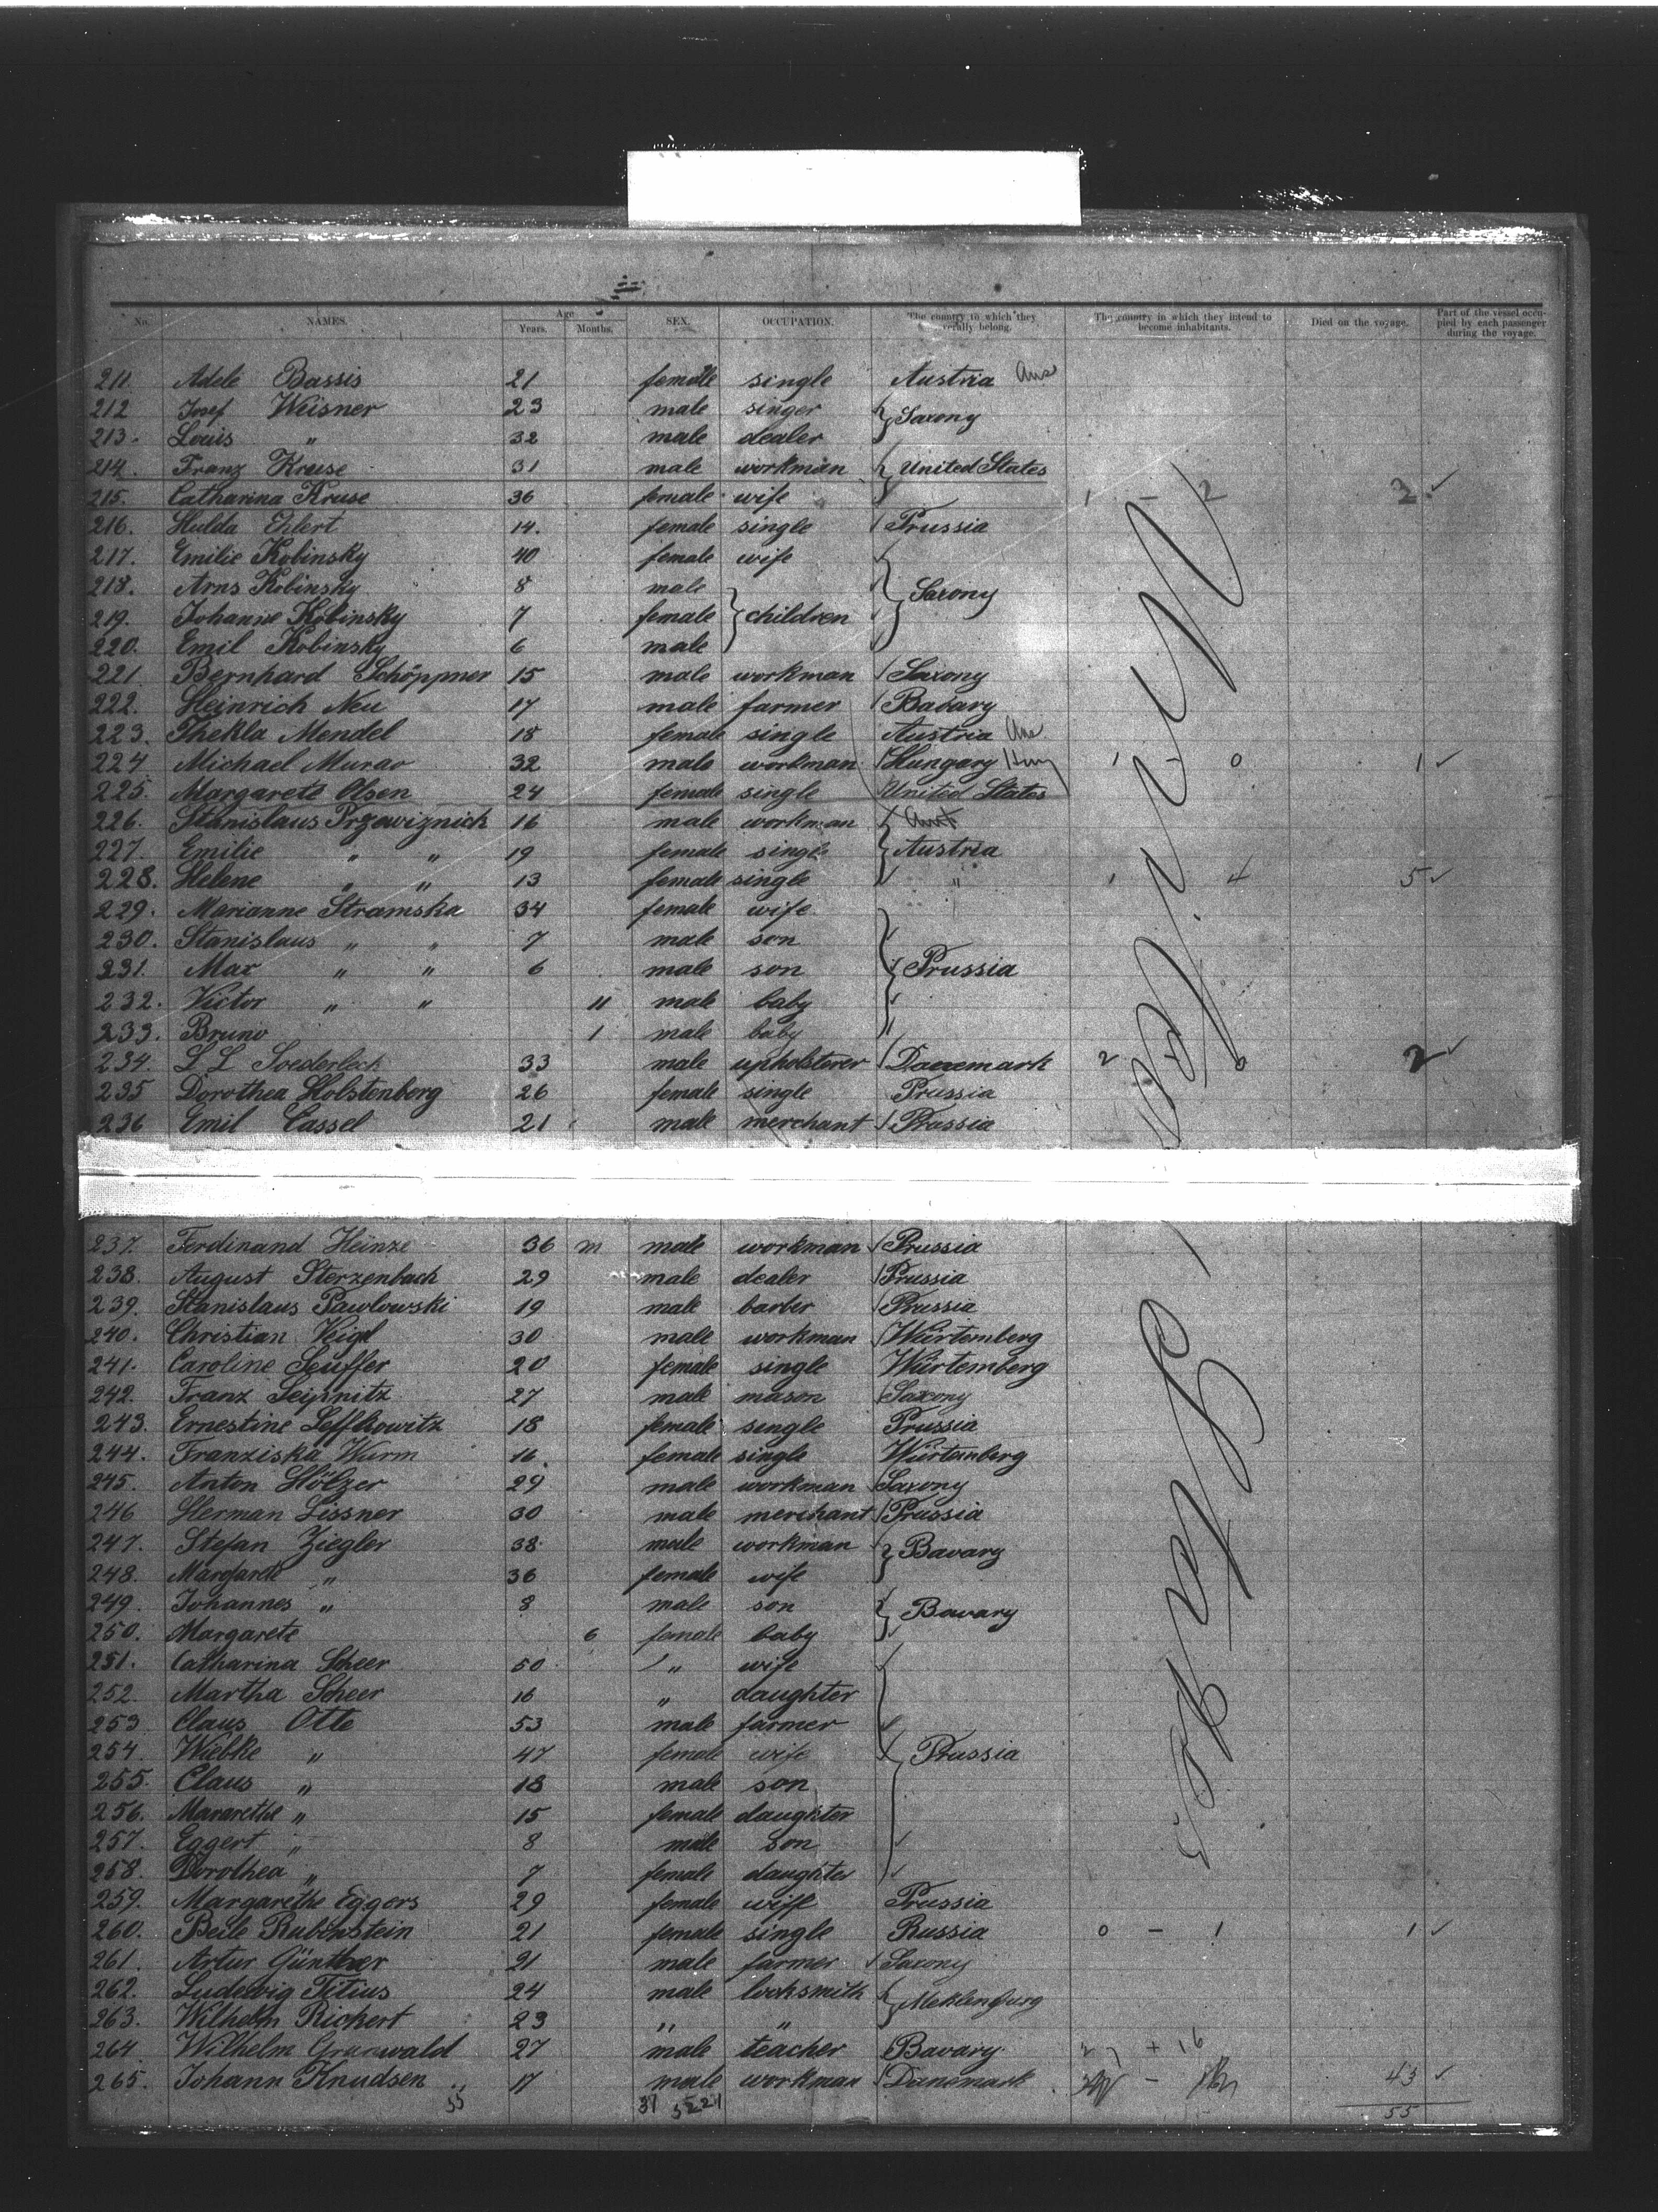 No. NAMES. Age Years. Months. SEX. OCCUPATION. The country to which they verally belong. The country in which they intend to become inhabitants. Died on the voyage. Part of the vessel occupied by each passenger during the voyage.
211. Adele Bassis 21 female single Austria Aus
212 Josef Weisner 23 male singer Saxony
213. Louis " 32 male dealer
214. Franz Kruse 31 male workman United States
215. Catharina Kruse 36 female wife 1 - 2 2 ✓
216. Hulda Ehlert 14. female single Prussia
217. Emilie Kobinsky 40 female wife
218. Arns Kobinsky 8 male Saxony
219. Johanne Kobinsky 7 female children
220. Emil Kobinsky 6 male
221. Bernhard Schöppner 15 male workman Saxony
222. Heinrich Neu 17 male farmer Bavary
223. Thekla Mendel 18 female single Austria Aus
224 Michael Murao 32 male workman Hungary Hung 1 - 0 1 ✓
225. Margarete Olsen 24 female single United States
226. Stanislaus Przewiznick 16 male workman Aust
227. Emilie " " 19 female single Austria
228. Helene " " 13 female single " 1 4 5 ✓
229. Marianne Stramska 34 female wife
230. Stanislaus " " 7 male son
231. Max " " 6 male son Prussia
232. Victor " " 11 male baby
233. Bruno 1 male baby
234. L. L. Soederleck 33 male upholsterer Danemark 2 0 2 ✓
235 Dorothea Holstenberg 26 female single Prussia
236 Emil Cassel 21 male merchant Prussia
237. Ferdinand Heinze 36 m male workman Prussia
238. August Sterzenbach 29 male dealer Prussia
239. Stanislaus Pawlowski 19 male barber Prussia
240. Christian Veigl 30 male workman Würtemberg
241. Caroline Seuffer 20 female single Würtemberg
242. Franz 27 male mason Saxony
243. Ernestine Leffkowitz 18 female single Prussia
244. Franziska Wurm 16. female single Würtemberg
245. Anton Hölzer 29 male workman Saxony
246 Herman Lissner 30 male merchant Prussia
247. Stefan Ziegler 38 male workman Bavary
248. Margarete " 36 female wife
249. Johannes " 8 male son Bavary
250. Margarete 6 female baby
251. Catharina Scheer 50 " wife
252. Martha Scheer 16 " daughter
253 Claus Otte 53 male farmer
254. Wiebke " 47 female wife Prussia
255. Claus " 18 male son
256. Mararethe " 15 female daughter
257. Eggert " 8 male son
258. Dorothea " 7 female daughter
259. Margarethe Eggers 29 female wiffe Prussia
260. Beile Rubinstein 21 female single Russia 0 - 1 1 ✓
261. Artur Günther 21 male farmer Saxony
262. Ludewig Titius 24 male locksmith Meklenburg
263. Wilhelm Rickert 23 " "
264 Wilhelm Grunwald 27 male teacher Bavary 27 + 16
265. Johann Knudsen 17 male workman Danemark - 43 ✓
55 31 55